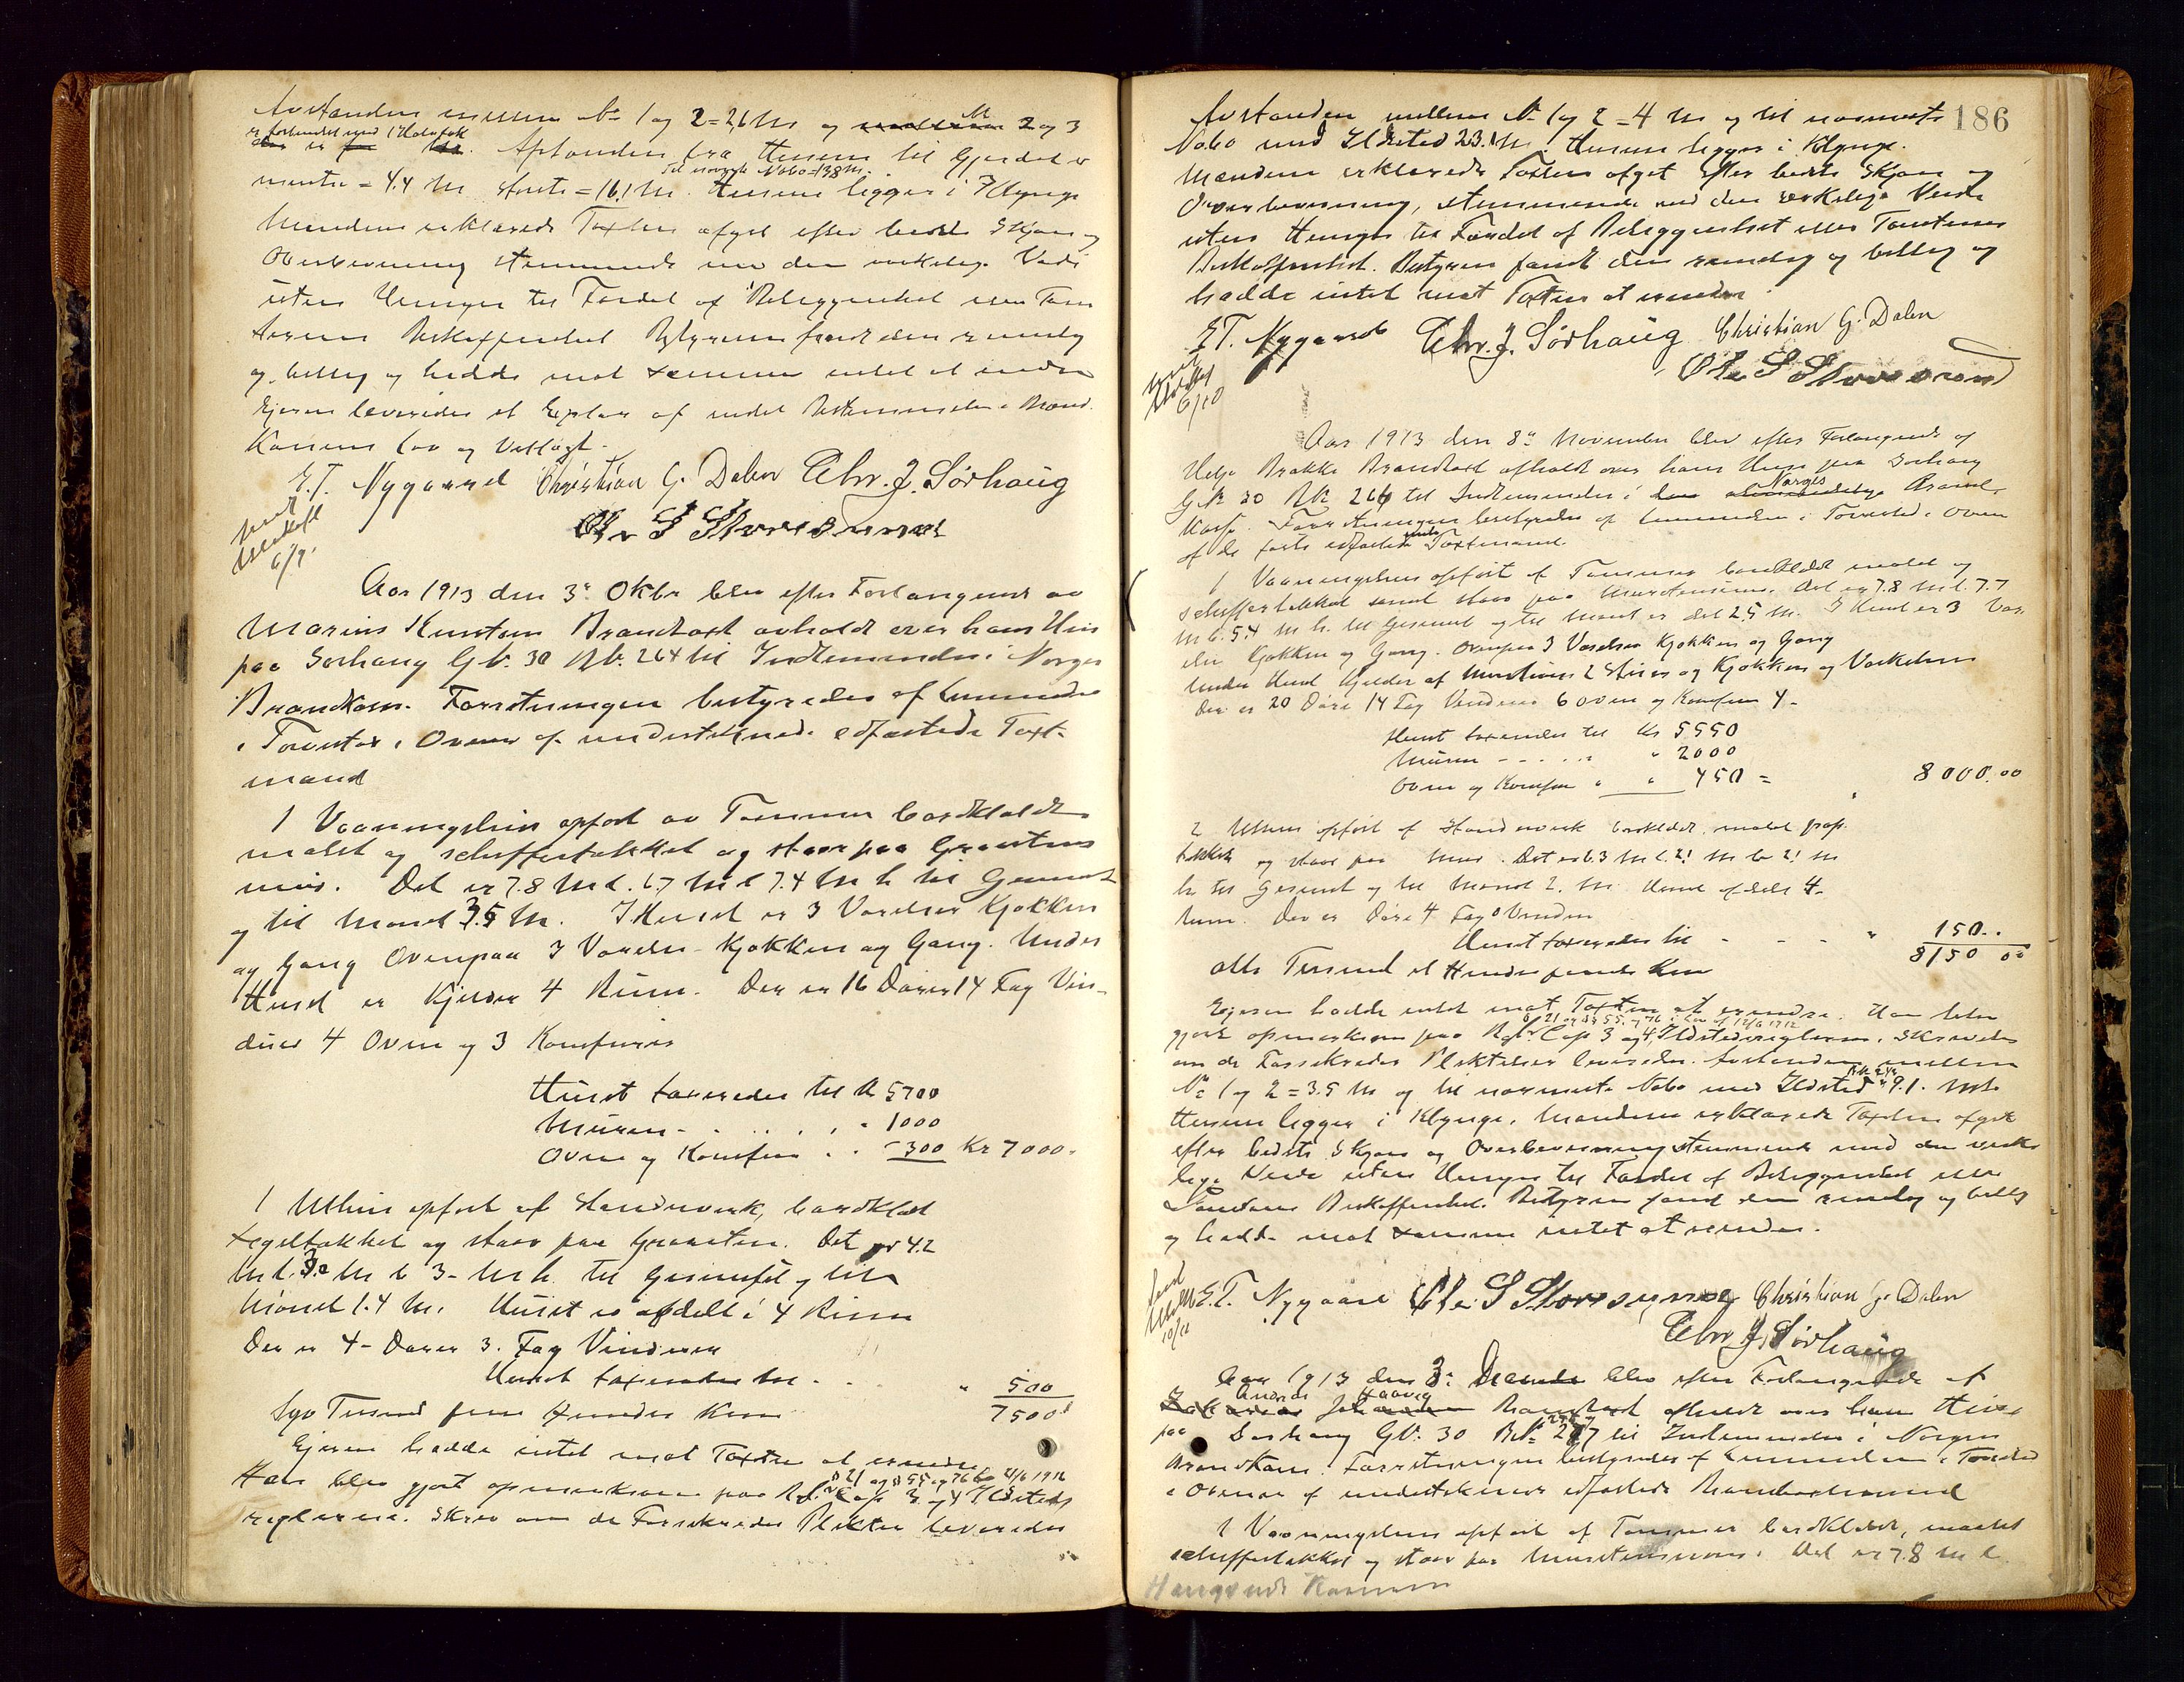 Avstanden mellem No 1 og 2 = 2,6 M og 2 og 3
er forbundet med 1 Halvtak
Afstanden fra Husene til Gjerdet er
Til nærmeste Nabo = 13,8 M.
mindste = 4.4 M største = 16,1 M. Husene ligger i Klynge
Mændene erklærede Taxten afgit efter bedste Skjøn og
Overbevisning stemmende med den virkelige Værdi
uten Hensyn til Fordel af Beliggenhet eller Tom
ternes Beskaffenhed Bestyreren fandt den rimelig
og billig og hadde mot samme intet at erindre
Ejeren leveredes et Explar af endel Bestemmelser i Brand
Kassens Lov og Vedtægt.
E. T. Nygaard Christian G. Dalen Chr. J. Sørhaug
Ole S Storesund
Aar 1913 den 3. Oktbr blev efter Forlangende av
Marius Knutsen Brandtaxt avholdt over hans Hus
paa Sørhaug G.No. 30 B.No. 264 til Indlemmelse i Norges
Brandkasse. Forretningen bestyredes af Lensmanden
i Torvestad i Overvær af undertegnede edfæstede Taxt-
mænd
1 Vaaningshus opført av Tømmer bordklædt
malet og skiffertækket og staar paa Graastens
mur. Det er 7.8 M l. 6.7 M b 7.4 M h til Gesimset
og til Mønet 3.5 M. I Huset er 3 Værelser Kjøkken
og Gang Ovenpaa 3 Værelser Kjøkken og Gang. Under
Huset er Kjelder 4 Rum. Der er 16 Dører 14 Fag Vin-
duer 4 Ovne og 3 Komfurer
Huset taxeredes til Kr 5700
Muren - . . . . " 1000
Ovne og Komfur . . " 300 Kr 7000.
1 Uthus opført af Stenderverk, bordklædt
tegltækket og staar paa Graasten. Det er 4.2
M l. 3.0 M b 3 - M h. til Gesimset og til
Mønet 1.4 M. Huset er afdelt i 4 Rum
Der er 4 - Dører 3. Fag Vinduer
Huset taxeredes til . . " 500
Syv Tusend fem Hundre Kroner 7500
Ejeren hadde intet mot Taxten at erindre
§ 21 og § 55 og 76 Lov 12/6 1912
Han blev gjort opmerksom paa Regl. Cap 3 og 4 Ildsteds
reglerne. Skrev om de Forsikredes Plikter leveredes
186
Avstanden mellem No 1 og 2 = 4 M og til nærmeste
Nabo med Ildsted 23.1 M. Husene ligger i Klynge.
Mændene erklærede Taxten afgit efter bedste Skjøn og
Overbevisning, stemmende med den virkelige Værdi
uten Hensyn til Fordel af Beliggenhet eller Tomternes
Beskaffenhed. Bestyreren fandt den rimelig og billig og
hadde intet mot Taxten at erindre
E. T. Nygaard Chr. J. Sørhaug Christian G. Dalen
Ole S Storesund
6/10
Aar 1913 den 8. November blev efter Forlangende af
Helge Brakke Brandtaxt afholdt over hans Hus paa Sørhaug
Norges
G.No 30 B.No 266 til Indlemmelse i Brand-
kasse. Forretningen bestyredes af Lensmanden i Torvestad i Overv
af de faste edfæstede Taxtmænd.
1 Vaaningshus opført af Tømmer bordklædt malet og
skiffertækket samt staar paa Murstensmur. Det er 7.8 M l. 7.7
M b. 5.4 M h. til Gesimset og til Mønet er det 2.5 M. I Huset er 3 Vær
elser Kjøkken og Gang. Ovenpaa 3 Værelser Kjøkken og Gang
Under Huset Kjelder af Mursten 2 Stuer og Kjøkken og Vaskehus
Der er 20 Døre 14 Fag Vinduer 6 Ovne og Komfur 4 -
Huset taxeredes til Kr 5550
Muren - . . . . " 2000
Ovne og Komfur " " 450 = 8000.00
2 Uthus opført af Stenderverk bordklædt, malet pap-
tækket og staar paa Mur. Det er 6.3 M l. 2.1 M b 2.1 M
h til Gesimset og til Mønet 2. M Huset afdelt 4-
Rum. Der er Døre 4 Fag Vinduer
Huset taxeredes til - - - " 150..
Otte Tusend et Hundre femti Kroner 8150 00
Ejeren hadde intet mot Taxten at erindre. Han blev
§ 21 og §§ 55 og 76 i Lov af 12/6 1912
gjort opmerksom paa Regl. Cap 3 og 4 Ildstedsreglerne. Skrevet
om de Forsikredes Pliktelser leveredes. Avstanden mellem
No 1 og 2 = 3.5 M og til nærmeste Nabo med Ildsted 9.1. M
Husene ligger i Klynge. Mændene erklærede Taxten afgit
efter bedste Skjøn og Overbevisning stemmende med den virke
lige Værdi uten Hensyn til Fordel af Beliggenhed eller
Tomtens Beskaffenhed. Bestyreren fandt den rimelig og billig
og hadde mot samme intet at erindre.
E. T. Nygaard Ole S Storesund Christian G. Dalen
Chr. J. Sørhaug
Aar 1913 den 3. Decembr blev efter Forlangende af
Brandtaxt afholdt over hans Hus
paa Sørhaug G.No. 30 B.No. 277 til Indlemmelse i Norges
Brandkasse. Forretningen bestyredes af Lensmanden i Torvestad
i Overvær af undertegnede edfæstede Brandtaxtmænd
1 Vaaningshus opført af Tømmer bordklædt, malet
skiffertækket og staar paa Murstensmur. Det er 7.8 M l.